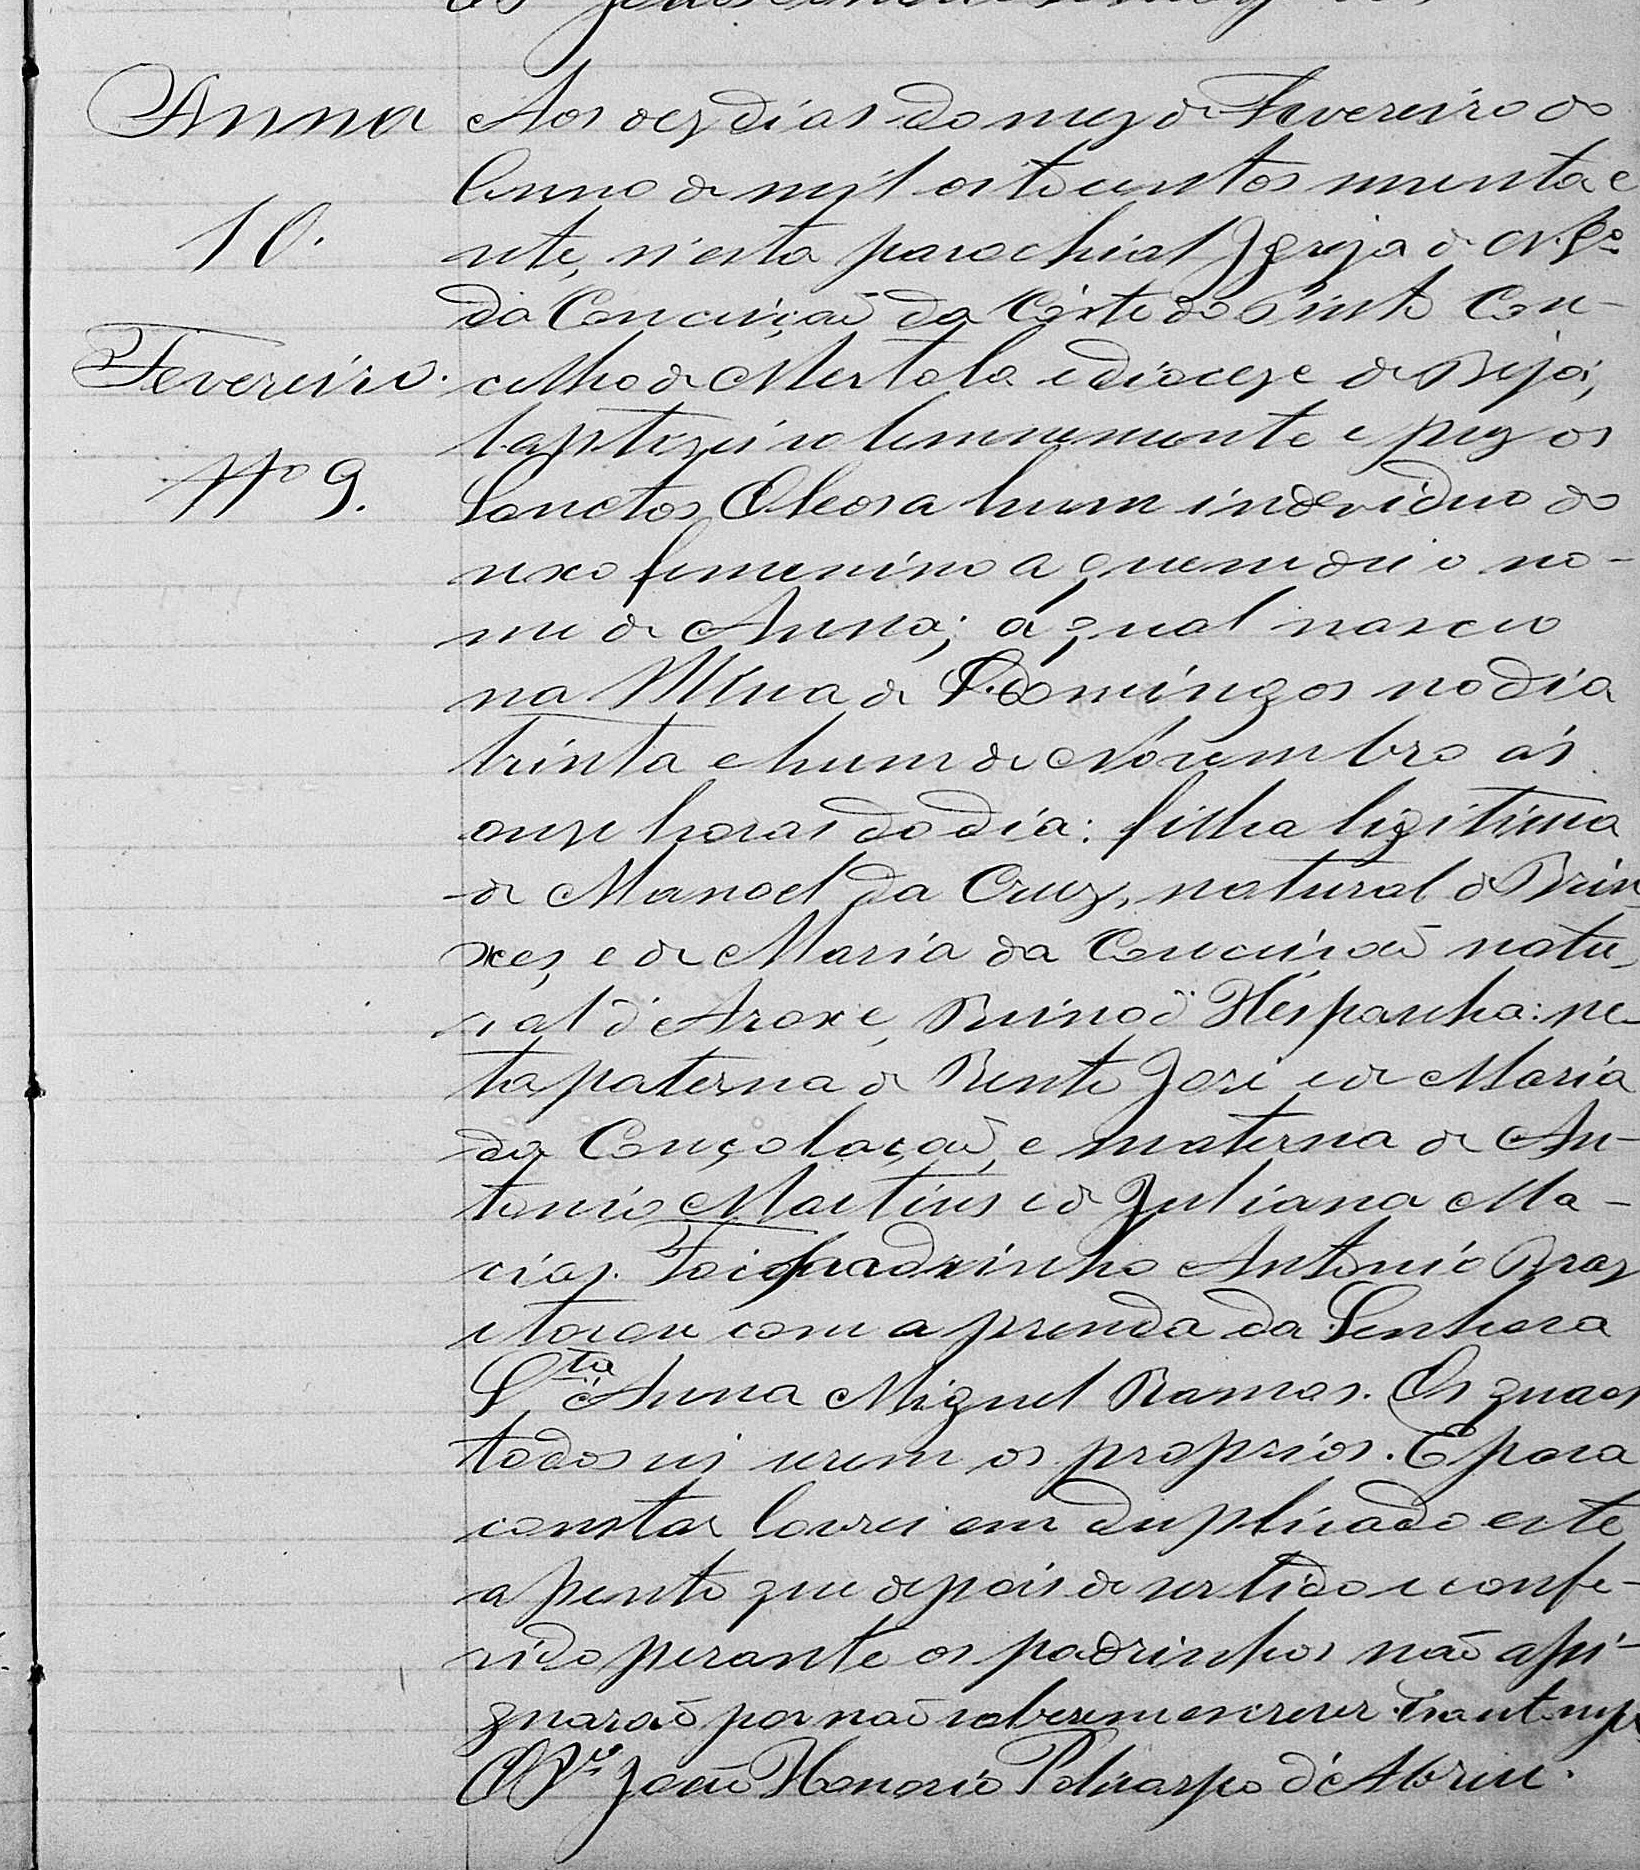 Anna
10.
Fevereiro.
Nº 9.
Aos dez dias do mez de Fevereiro do
Anno de mil oitocentos noventa e
sete, n'esta parochial Igreja de N. Srª
da Conceição da Côrte do Pinto Con-
celho de Mertola e dioceze de Beja,
baptizei solemnemente e puz os
Sanctos Oleos a hum individuo do
sexo femenino a quem dei o no-
me de Anna; a qual nasceo
na Mina de S. Domingos no dia
trinta e hum de Novembro ás
onze horas do dia: filha ligitima
de Manoel da Cruz, natural de Brin-
xes, e de Maria da Conceição natu-
ral d'Aroxe, Reino d'Hespanha: ne-
ta paterna de Bento José e de Maria
da Conçolação, e materna de An-
tonio Martins e de Juliana Ma-
cias. Foi padrinho Antonio Braz
e tocou com a prenda da Senhora
Sta Anna Miguel Ramos. Os quaes
todos sei serem os proprios. E para
constar lavrei em duplicado este
apento que depois de ser lido e confe-
rido perante os padrinhos não assi-
gnarão por não saberem escrever.
O Pr. João Honorio Policarpo d'Abreu.